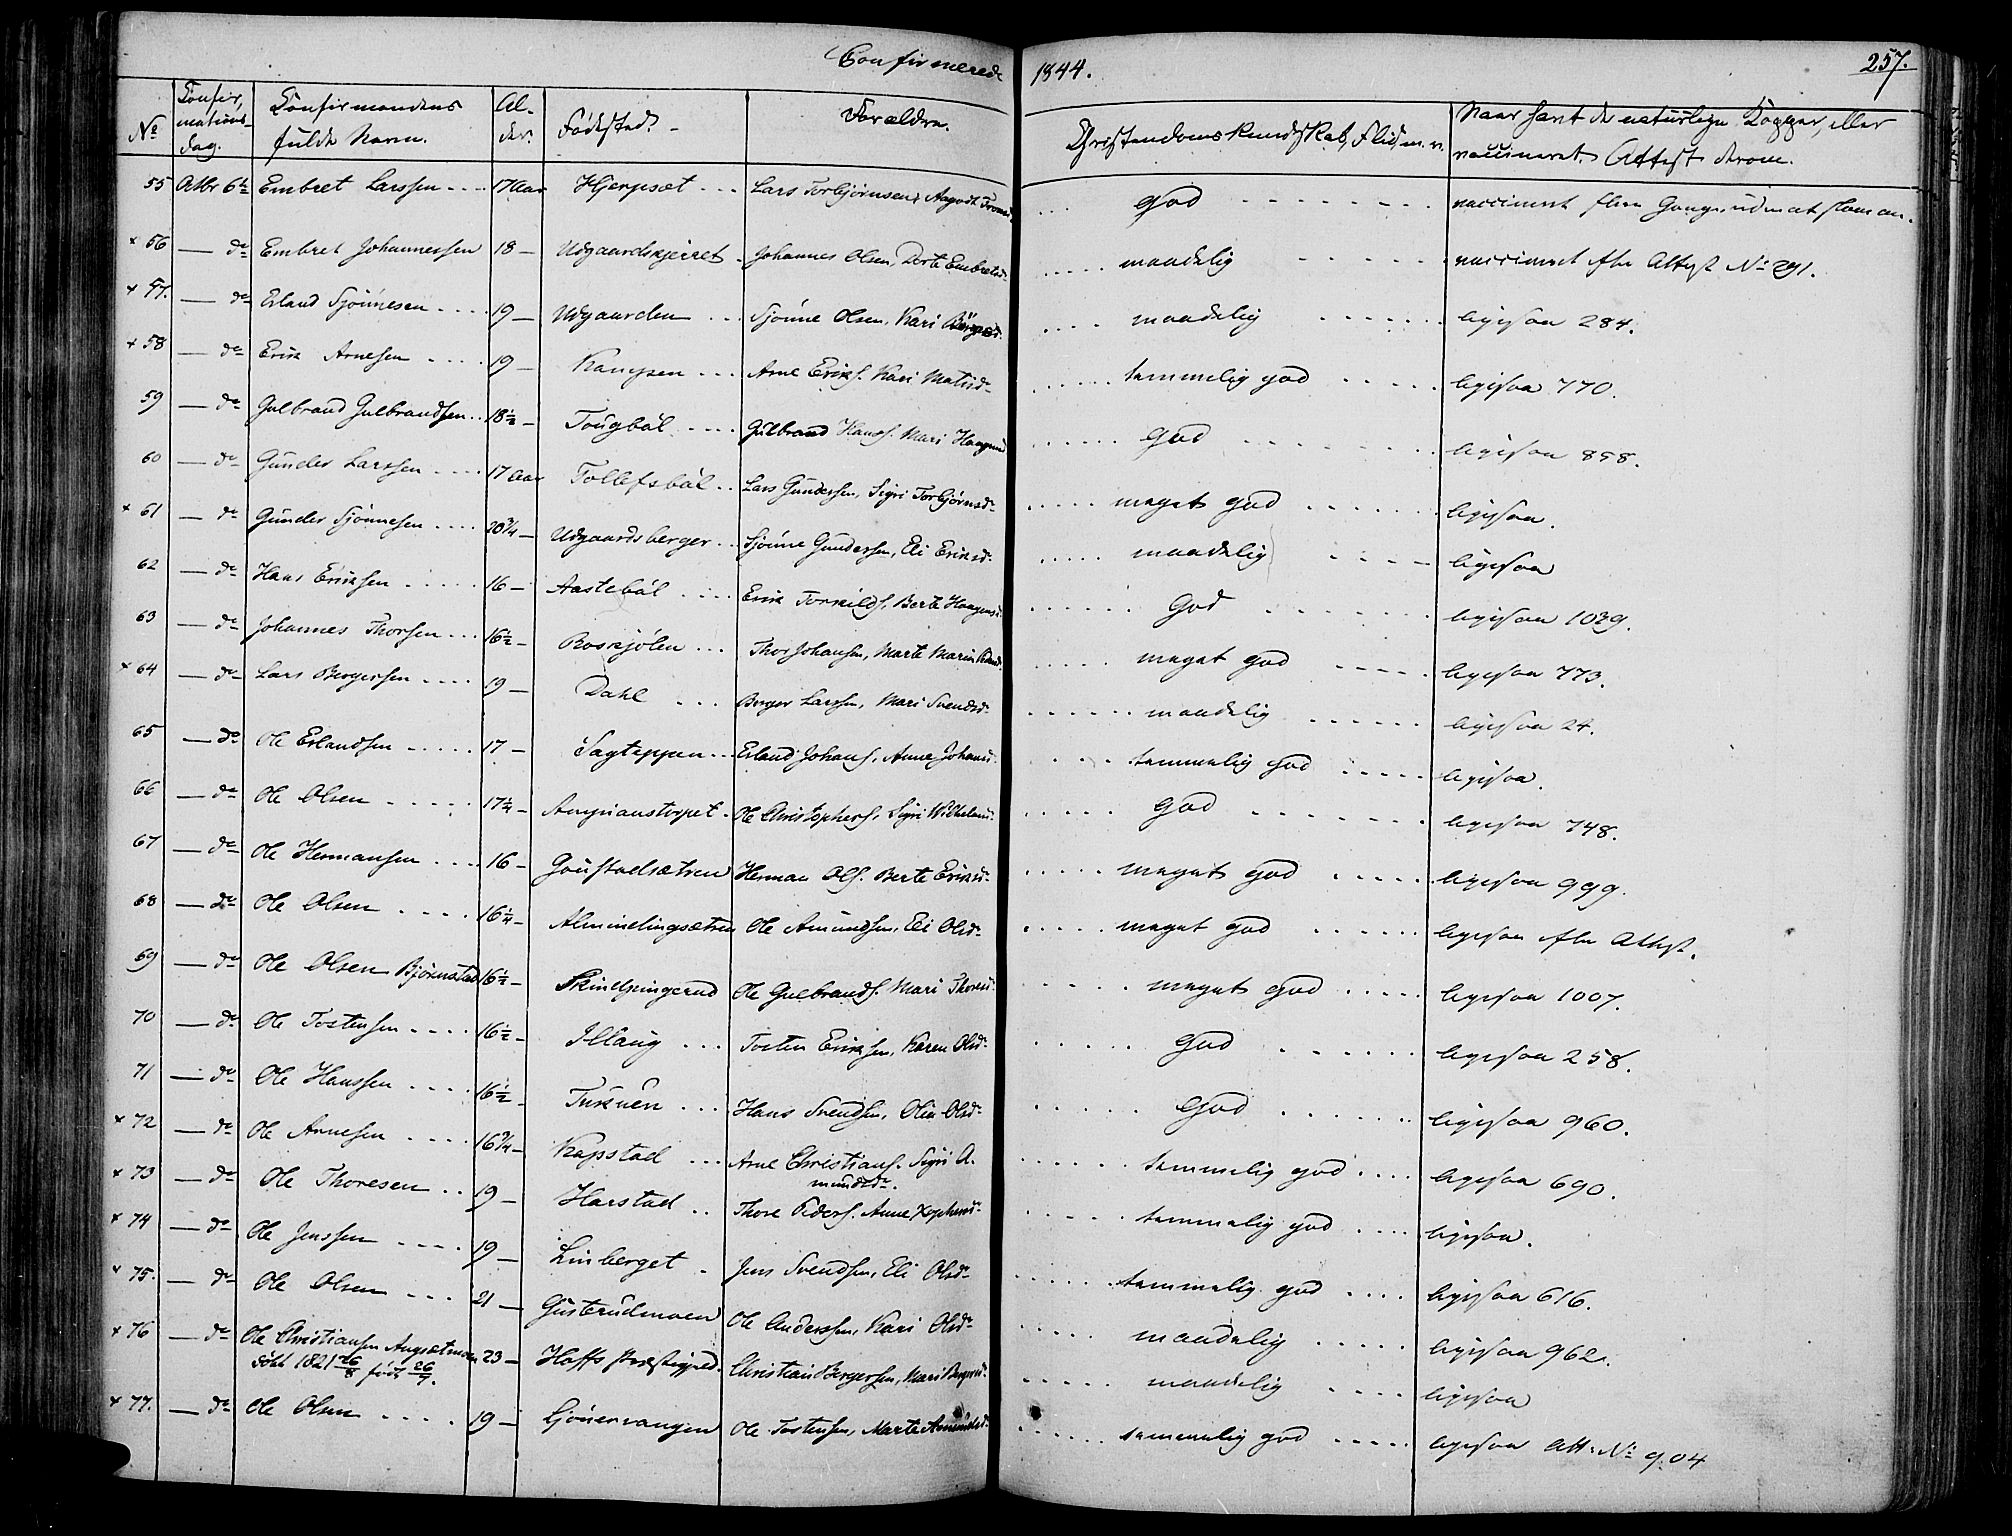 Confirmerede 1844. 257.
No Confirmations-dag. Confirmandens fulde Navn. Al-der. Fødested. Forældre. Christendomskundskab, Flid, m. v. Naar havt de naturlige Kopper, eller vaccineret. Attest derom.
55 Octbr 6te Embret Larssen 17 Aar Hjerpsæt Lars Torbjørnsen, Aagodt god vaccineret
+ 56 — do Embret Johannessen 18 — Udgaardskjerret Johannes Olsen, Dorte Embretsd. maadelig vaccineret efter Attest No 291.
+ 57. — do Erland Sjønnesen 19 — Udgaarden Sjønne Olsen, Kari maadelig ligesaa 284.
+ 58 — do Erik Arnesen 19 — Kampen Arne Eriks. Kari Matsd. temmelig god ligesaa 770.
59 — do Gulbrand Gulbrandsen 18½ — Tougbøl Gulbrand Hans. Mari Haagensd. God ligesaa 858.
60 — do Gunder Larssen 17 Aar Tollefsbøl Lars Gundersen, Sigri Torbjørnsd. meget god ligesaa.
+ 61 — do Gunder Sjønnesen 20¾ — Udgaardsberger Sjønne Gundersen, Eli Eriksd. maadelig ligesaa
62 — do Hans Eriksen 16 — Aastebøl Erik Torkilds. Berte Haagensd. God ligesaa 1039.
63 — do Johannes Thorsen 16½ — Roskjølen Thor Johansen, Marte Marie meget god ligesaa 773.
+ 64 — do Lars Bergersen 19 — Dahl Berger Larssen, Mari Svendsd. maadelig ligesaa 24.
65 — do Ole Erlandsen 17 — Sagteppen Erland Johans. Anne Johansd. temmelig god ligesaa.
66 — do Ole Olsen 17¼ — Ole Christophers. Sigri Wilhelmsd. God ligesaa 748.
67 — do Ole Hermansen 16 — Goustadsætren Herman Ols. Berte Eriksd. meget god ligesaa 999.
68 — do Ole Olsen 16¼ — Almindingsætren Ole Amundsen, Eli Olsd. meget god ligesaa efter Attest.
69 — do Ole Olsen Bjørnstad 16½ — Skindpingerud Ole Gulbrands. Mari Thoresd. meget god ligesaa 1007.
70 — do Ole Tostensen 16½ — Illaug Tosten Eriksen, Karen Olsd. God ligesaa 258.
71 — do Ole Hanssen 16½ — Hans Svendsen, Olia Olsd. God ligesaa 960.
+ 72 — do Ole Arnesen 16¾ — Kopstad Arne Christians. Sigri A-
mundsdr. temmelig god ligesaa 690.
+ 73 — do Ole Thoresen 19 — Harstad Thore Peders. Anne temmelig god ligesaa.
+ 74 — do Ole Jenssen 19 — Linberget Jens Svendsen, Eli Olsd. temmelig god ligesaa 616.
+ 75. — do Ole Olsen 21 — Gusterudmoen Ole Anderssen, Kari Olsd. maadelig ligesaa 962.
+ 76 — do Ole Christiansen Augsætmoen 23 — Hoffs Præstegjeld. Christian Bergersen, Mari maadelig ligesaa
døbt 1821 26/8 født 26/7.
+ 77. — do Ole Olsen 19 — Gjønervangen Ole Tostensen, Marte Amundsd. temmelig god ligesaa Att. No 904